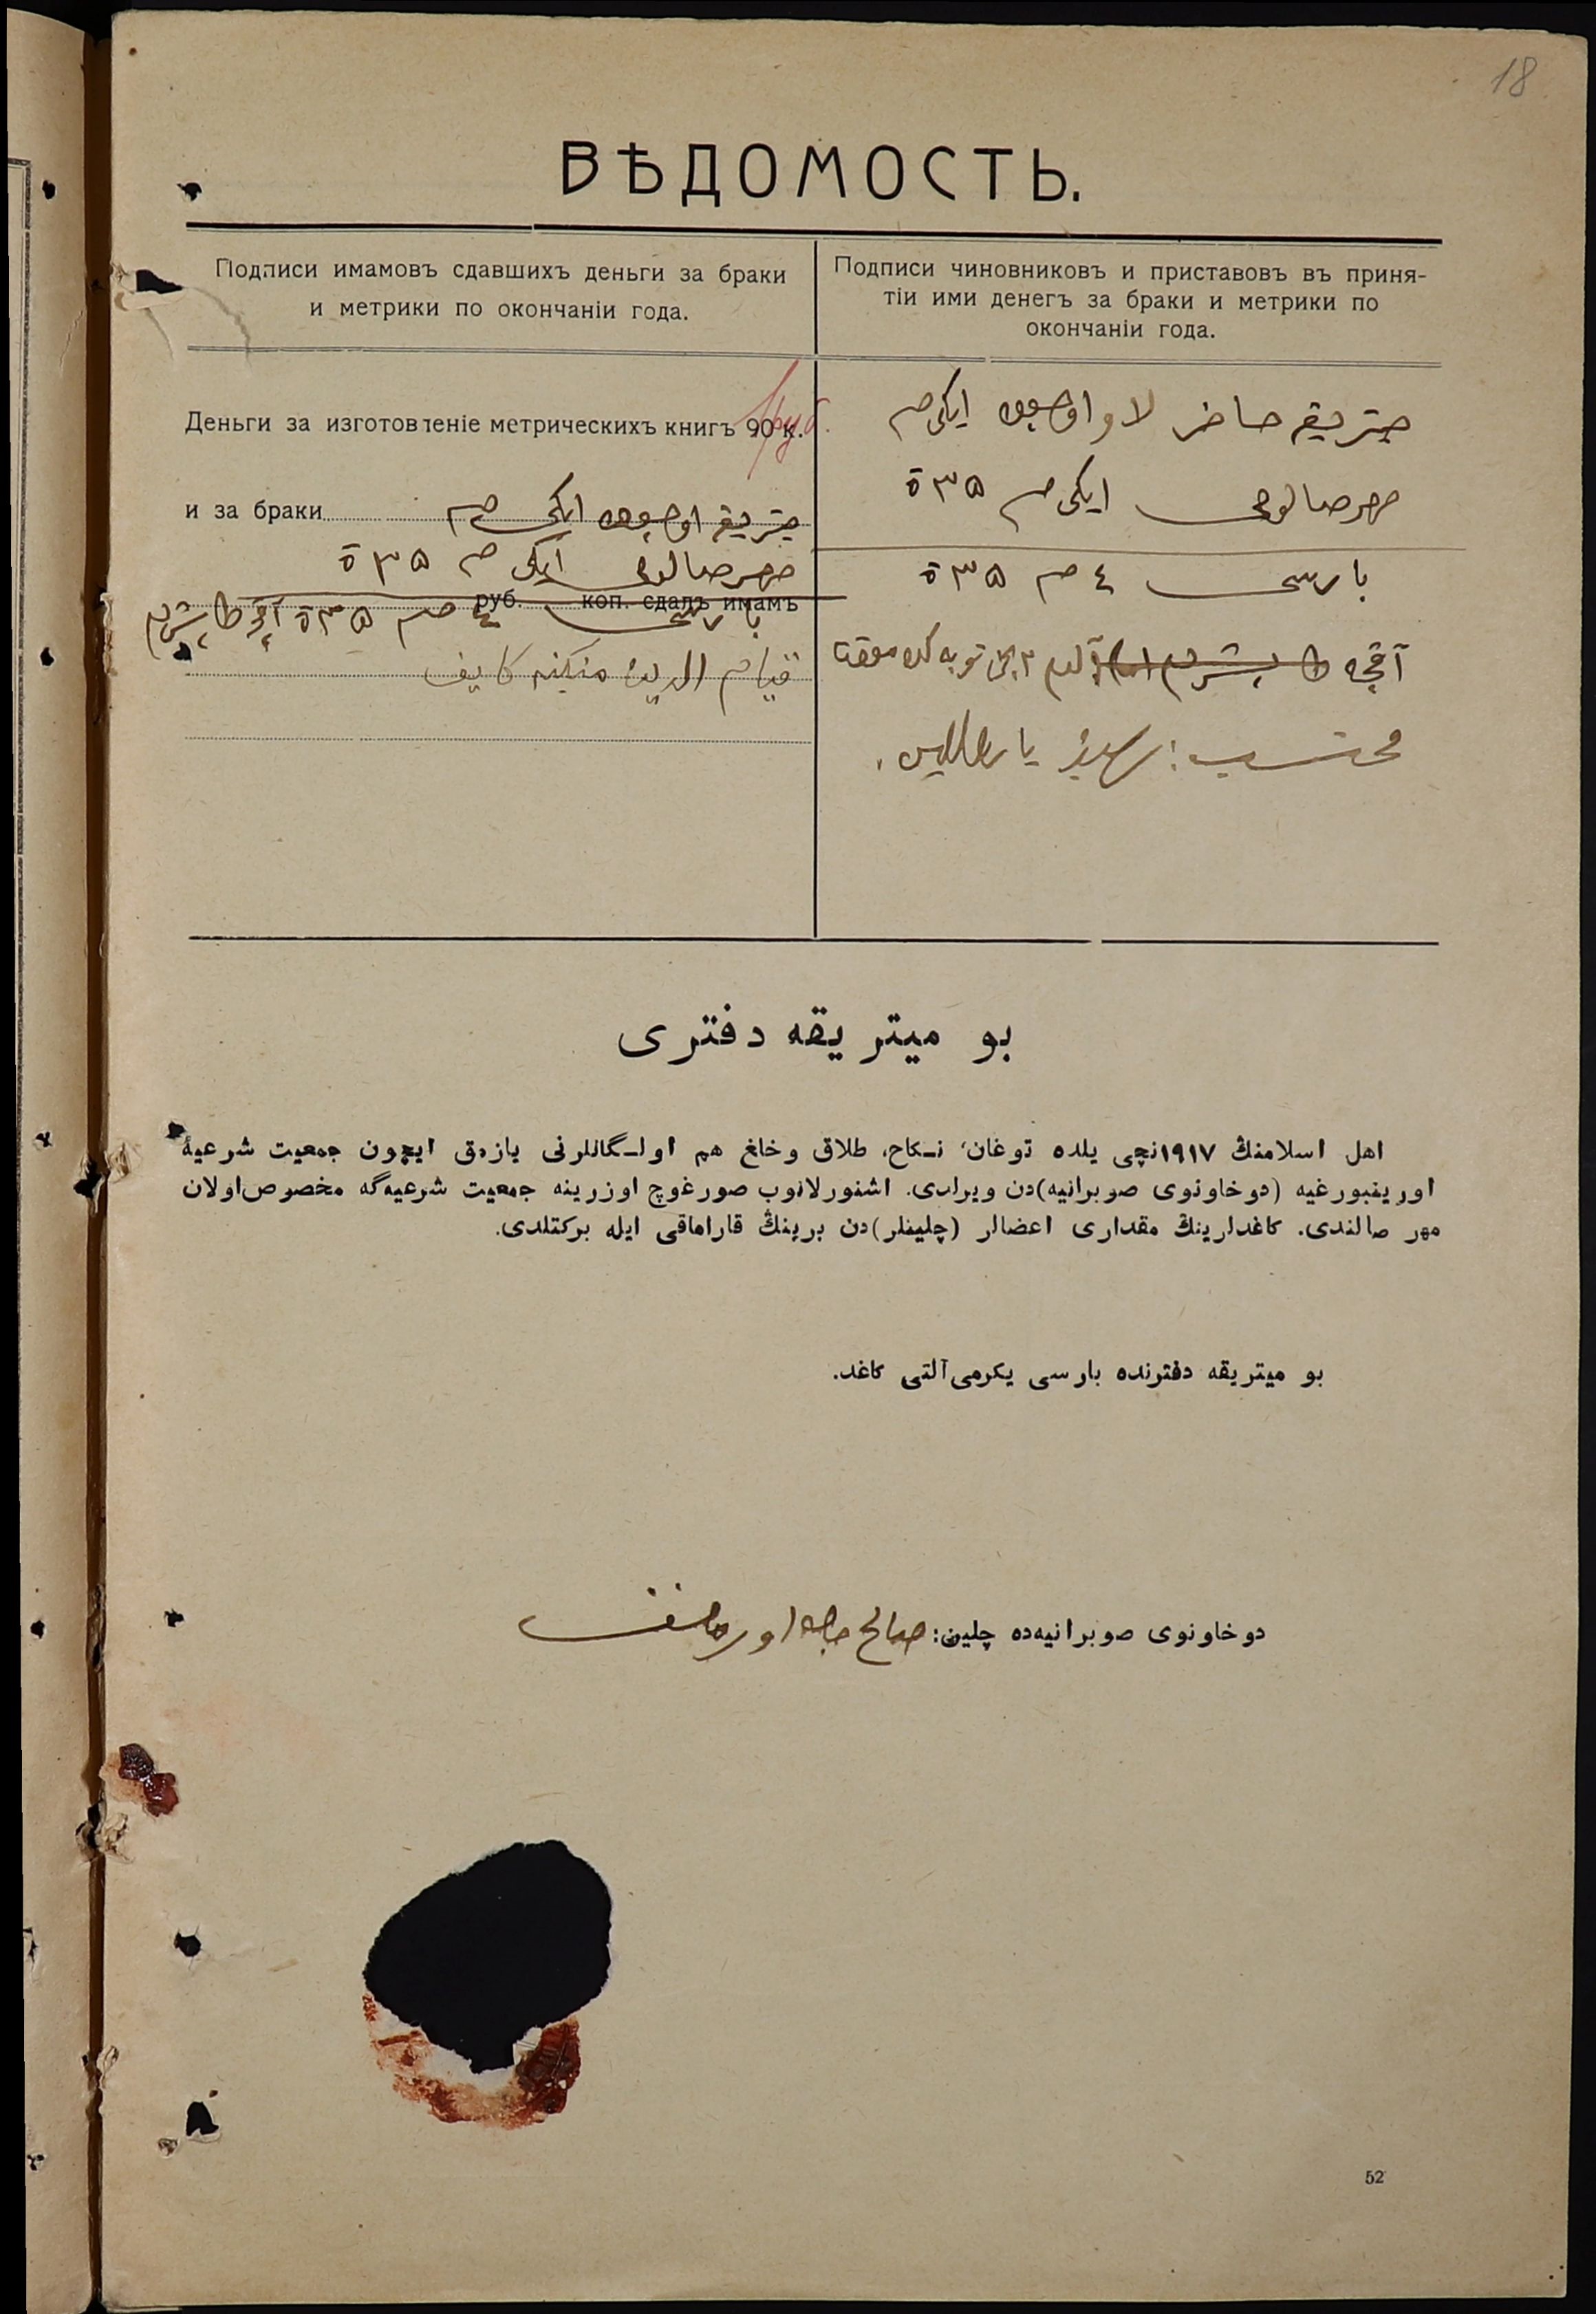 18
ВѢДОМОСТЬ.
Подписи имамовъ сдавшихъ деньги за браки
и метрики по окончаніи года.
Подписи чиновниковъ и приставовъ въ приня-
тіи ими денегъ за браки и метрики по
окончаніи года.
Деньги за изготовленіе метрическихъ книгъ 90 к.
1 руб.
и за браки میتریقه اوچون ایکی صم
مهر صالوغی ایکی صم ٣٥ ة
руб. коп. сдалъ имамъ
بارسی ٤ صم ٣٥ ة آقچه طابشردم
قیام الدین منکنه کایف
میتریقه حاضرلاو اوچون ایکی صم
مهر صالوغی ایکی صم ٣٥ ة
بارسی ٤ صم ٣٥ ة
آقچه طابشردم آلدم
محتسب:
بو میتریقه دفتری
اهل اسلامنڭ ١٩١٧نچی یلده توغان، نـکاح، طلاق وخلغ هم اولـگانلرنی یازمق ایچون جمعیت شرعیهٔ
اورینبورغیه (دوخاونوی صوبرانیه)دن ویرلدی. اشنورلانوب صورغوچ اوزرینه جمعیت شرعیه‌گه مخصوص اولان
مهر صالندی. کاغدلرینڭ مقداری اعضالر (چلینلر)دن برینڭ قاراماقی ایله برکتلدی.
بو میتریقه دفترنده بارسی یکرمی آلتی کاغد.
دوخاونوی صوبرانیه‌ده چلین: صالح
52